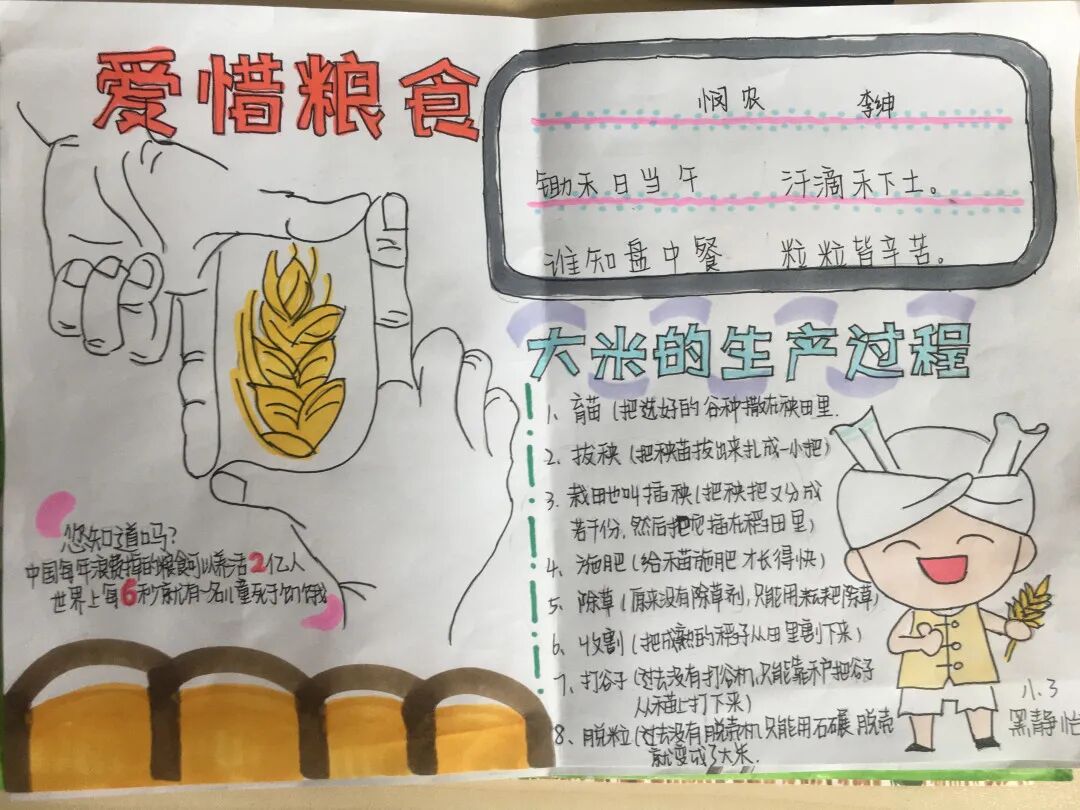 爱惜粮食
悯农 李绅
锄禾日当午 汗滴禾下土。
谁知盘中餐 粒粒皆辛苦。
大米的生产过程
1、育苗(把选好的谷种撒在秧田里.
2、拔秧(把秧苗拔出来扎成一小把)
3、栽田也叫插秧(把秧把又分成
若干份,然后把它插在稻田里)
4、施肥(给禾苗施肥才长得快)
5、除草(原来没有除草剂,只能用耘耙除草)
6、收割(把成熟的稻子从田里割下来)
7、打谷子(过去没有打谷机,只能靠禾户把谷子
从禾苗上打下来)
8、脱粒(过去没有脱壳机,只能用石碾脱壳
就变成了大米.
您知道吗?
中国每年浪费掉的粮食可以养活2亿人
世界上每6秒就有一名儿童死于饥饿
八.3
黑静怡